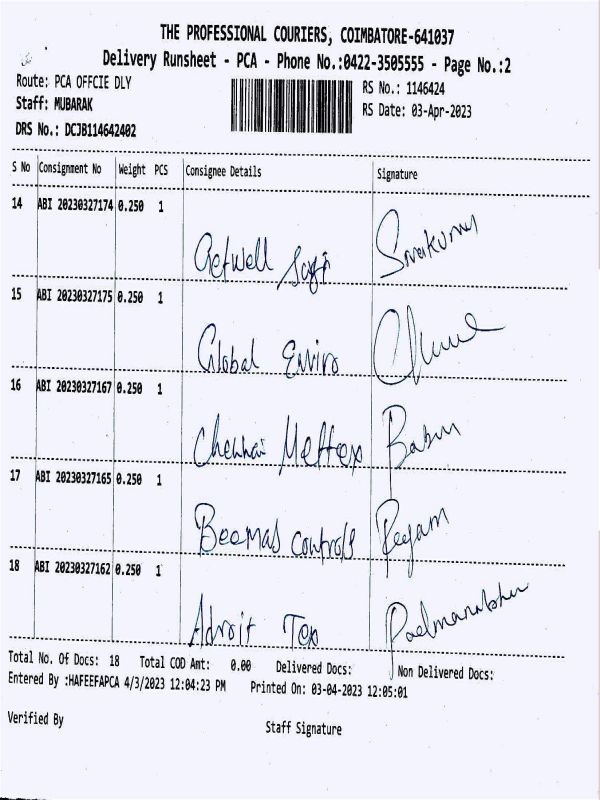 THE PROFESSIONAL COURIERS, COIMBATORE-641037
Delivery Runsheet - PCA - Phone No.:0422-3505555 - Page No.:2
Route: PCA OFFCIE DLY
RS No.: 1146424
Staff: MUBARAK
RS Date: 03-Apr-2023
DRS No.: DCJB114642402
S No Consignment No Weight PCS Consignee Details Signature
14 ABI 20230327174 0.250 1
Getwell Sivakumar
15 ABI 20230327175 0.250 1
Global Enviro
16 ABI 20230327167 0.250 1
Chennai Babu
17 ABI 20230327165 0.250 1
Beemas controls
18 ABI 20230327162 0.250 1
Adroit Tex Padmanabhan
Total No. Of Docs: 18 Total COD Amt: 0.00 Delivered Docs: Non Delivered Docs:
Entered By :HAFEEFAPCA 4/3/2023 12:04:23 PM Printed On: 03-04-2023 12:05:01
Verified By
Staff Signature